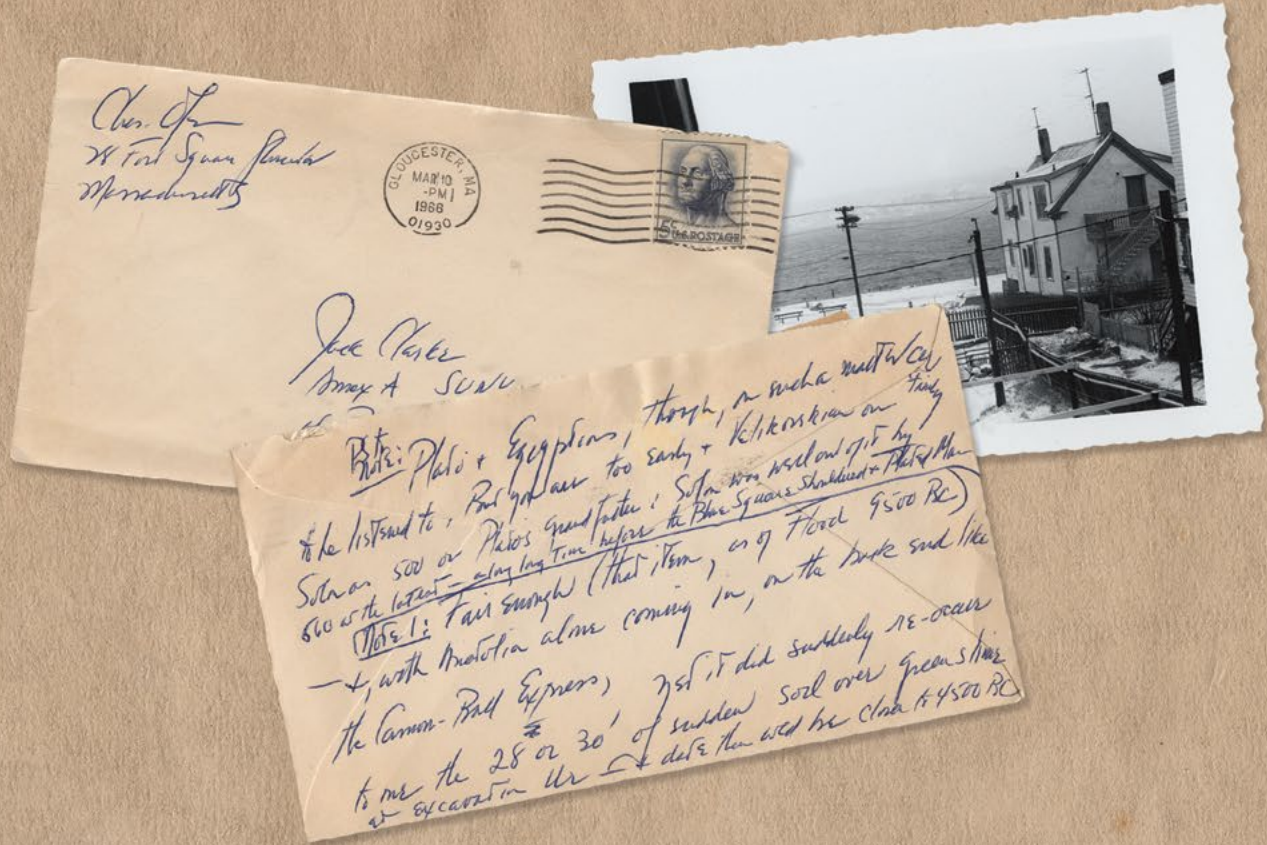 28 Fort Square Gloucester
Massachusetts
GLOUCESTER, MA
MAR 10
-PM
1966
01930
5¢ U.S. POSTAGE
Jack Clarke
Annex A SUNY
Note: Plato + Egyptians, though, on such a matter
he listened to, But you are too early + Velikovskian on
Solon as 500 or Plato's grandfather: Solon was well out of it by
560 at the latest - a long long time before the Blue Square Shouldered + Plated Man
Note 1: Fair enough (that item, as of Flood 9500 BC)
— +, with Anatolia alone coming in, on the back end like
the Cannon-Ball Express, yet it did suddenly re-occur
to me the 28 or 30' of sudden soil over greenstone
at excavation Ur — + date then wld be closer to 4500 BC